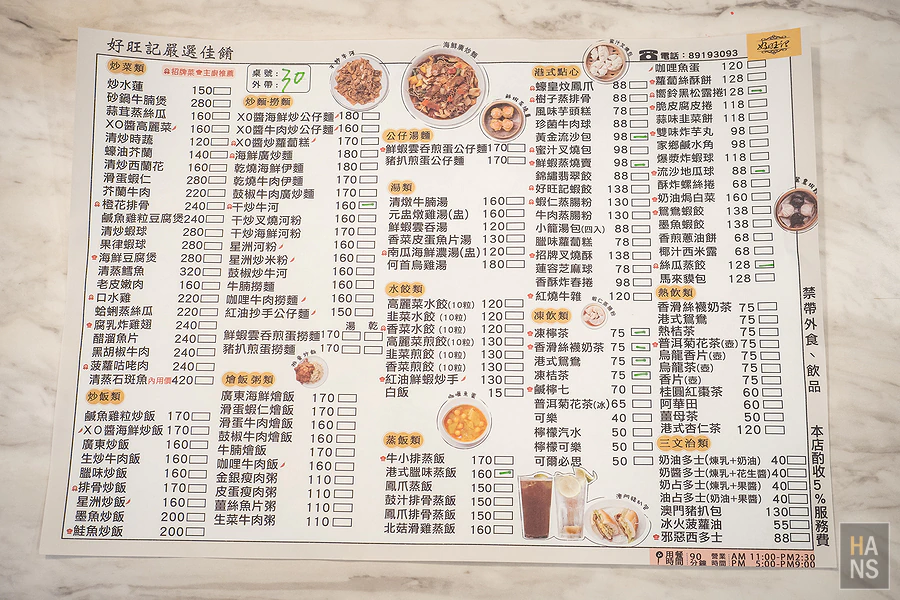 好旺記嚴選佳餚
招牌菜 主廚推薦
桌號: 30
外帶:
電話:89193093
炒菜類
炒水蓮 150
砂鍋牛腩煲 280
蒜茸蒸絲瓜 160
XO醬高麗菜 160
清炒時蔬 120
蠔油芥蘭 140
清炒西蘭花 160
滑蛋蝦仁 280
芥蘭牛肉 220
橙花排骨 240
鹹魚雞粒豆腐煲 240
清炒蝦球 280
果律蝦球 280
海鮮豆腐煲 280
清蒸鱈魚 320
老皮嫩肉 160
口水雞 220
蛤蜊蒸絲瓜 220
腐乳炸雞翅 240
醋溜魚片 240
黑胡椒牛肉 240
菠蘿咕咾肉 240
清蒸石斑魚 內用價 420
炒飯類
鹹魚雞粒炒飯 170
XO醬海鮮炒飯 170
廣東炒飯 160
生炒牛肉飯 160
臘味炒飯 160
排骨炒飯 170
星洲炒飯 160
墨魚炒飯 200
鮭魚炒飯 200
炒麵·撈麵
XO醬海鮮炒公仔麵 180
XO醬牛肉炒公仔麵 160
XO醬炒蘿蔔糕 170
海鮮廣炒麵 180
乾燒海鮮伊麵 180
乾燒牛肉伊麵 170
鼓椒牛肉廣炒麵 170
干炒牛河 160
干炒叉燒河粉 160
干炒海鮮河粉 170
星洲河粉 160
星洲炒米粉 160
鼓椒炒牛河 160
牛腩撈麵 160
咖哩牛肉撈麵 160
紅油抄手公仔麵 150
湯 乾
鮮蝦雲吞煎蛋撈麵 170
豬扒煎蛋撈麵 170
燴飯粥類
廣東海鮮燴飯 170
滑蛋蝦仁燴飯 170
滑蛋牛肉燴飯 160
鼓椒牛肉燴飯 160
牛腩燴飯 160
咖哩牛肉飯 160
金銀瘦肉粥 110
皮蛋瘦肉粥 110
薑絲魚片粥 110
生菜牛肉粥 110
海鮮廣炒麵
公仔湯麵
鮮蝦雲吞煎蛋公仔麵 170
豬扒煎蛋公仔麵 170
湯類
清燉牛腩湯 160
元盅燉雞湯(盅) 160
鮮蝦雲吞湯 120
香菜皮蛋魚片湯 130
南瓜海鮮濃湯(盅) 120
何首烏雞湯 180
水餃類
高麗菜水餃(10粒) 120
韭菜水餃(10粒) 120
香菜水餃(10粒) 120
高麗菜煎餃(10粒) 130
韭菜煎餃(10粒) 130
香菜煎餃(10粒) 130
紅油鮮蝦炒手 130
白飯 15
咖哩魚蛋
蒸飯類
牛小排蒸飯 170
港式臘味蒸飯 160
鳳爪蒸飯 150
鼓汁排骨蒸飯 150
鳳爪排骨蒸飯 150
北菇滑雞蒸飯 160
港式點心
蠔皇炆鳳爪 88
樹子蒸排骨 88
風味芋頭糕 78
珍菌牛肉球 88
黃金流沙包 98
蜜汁叉燒包 98
鮮蝦蒸燒賣 98
錦繡翡翠餃 88
好旺記蝦餃 138
蝦仁蒸腸粉 130
牛肉蒸腸粉 130
小籠湯包(四入) 88
臘味蘿蔔糕 78
招牌叉燒酥 138
蓮容芝麻球 78
香酥炸春捲 98
紅燒牛雜 120
凍飲類
凍檸茶 75
香滑絲襪奶茶 75
港式鴛鴦 75
凍桔茶 75
鹹檸七 70
普洱菊花茶(冰) 65
可樂 40
檸檬汽水 50
檸檬可樂 50
可爾必思 50
咖哩魚蛋 120
蘿蔔絲酥餅 128
嚮鈴黑松露捲 128
脆皮腐皮捲 118
蒜味韭菜餅 118
雙味炸芋丸 98
家鄉鹹水角 98
爆漿炸蝦球 118
流沙地瓜球 88
酥炸螺絲捲 68
奶油焗白菜 160
鴛鴦蝦餃 138
墨魚蝦餃 138
香煎蔥油餅 68
椰汁西米露 68
絲瓜蒸餃 128
馬來糢包 128
熱飲類
香滑絲襪奶茶 75
港式鴛鴦 75
熱桔茶 75
普洱菊花茶(壺) 75
烏龍香片(壺) 75
烏龍茶(壺) 75
香片(壺) 75
桂圓紅棗茶 60
阿華田 60
薑母茶 50
港式杏仁茶 120
三文治類
奶油多士(煉乳+奶油) 40
奶醬多士(煉乳+花生醬) 40
奶占多士(煉乳+果醬) 40
油占多士(奶油+果醬) 40
澳門豬扒包 130
冰火菠蘿油 55
邪惡西多士 88
禁帶外食、飲品
本店酌收5%服務費
用餐時間 90分鐘 營業時間 AM 11:00-PM2:30
PM 5:00-PM9:00
HANS